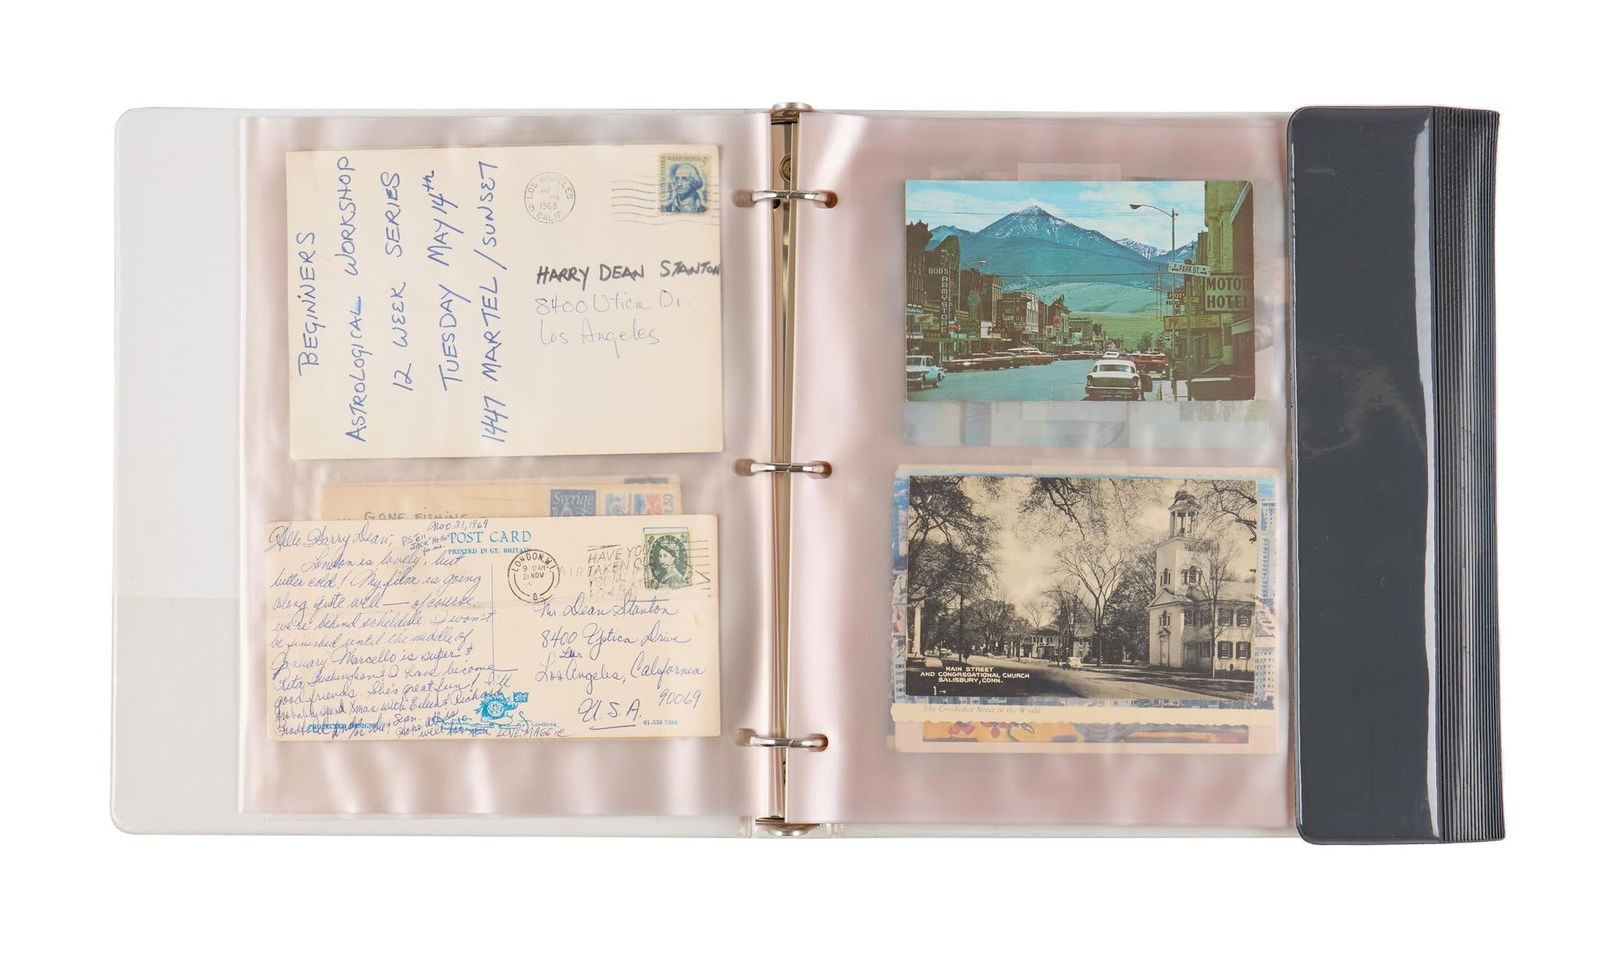 BEGINNERS
ASTROLOGICAL WORKSHOP
12 WEEK SERIES
TUESDAY MAY 14th
1447 MARTEL / SUNSET
LOS ANGELES
1968
CALIF
WASHINGTON
HARRY DEAN STANTON
8400 Utica Dr.
Los Angeles
GONE FISHING
Sverige
Nov. 21, 1969
Hello Harry Dean,
London is lovely, but
bitter cold! My film is going
along quite well — of course,
we're behind schedule. I won't
be finished until the middle of
January. Marcello is super &
Rita Tushingham & I have become
good friends. She's great fun. I'll
probably spend Xmas with Eileen
LOVE, MAGGIE
POST CARD
PRINTED IN GT. BRITAIN
LONDON W1
21 NOV
HAVE YOU
TAKEN
Mr. Dean Stanton
8400 Ystica Drive
Los Angeles, California
90069
U.S.A.
BOBS
ARMY STORE
PARK ST.
MOTOR
HOTEL
MAIN STREET
AND CONGREGATIONAL CHURCH
SALISBURY, CONN.
The Crookedest Street in the World